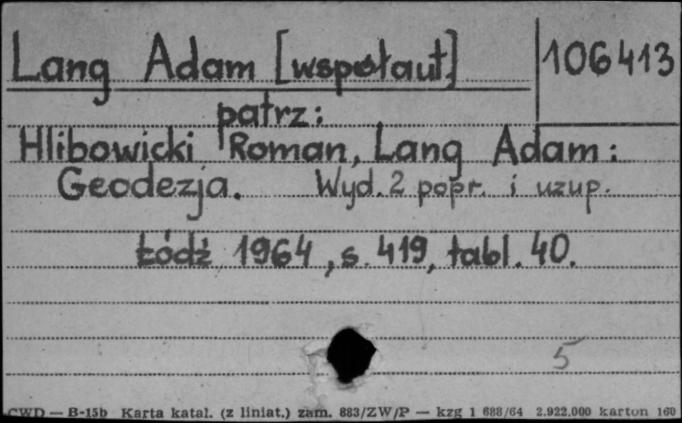 Lang Adam [współaut] 106413
patrz:
Hlibowicki Roman, Lang Adam:
Geodezja. Wyd. 2 popr. i uzup.
Łódź 1964, s. 419, tabl. 40.
5
CWD — B-15b Karta katal. (z liniat.) zam. 883/ZW/P — kzg 1 688/64 2.922.000 karton 160